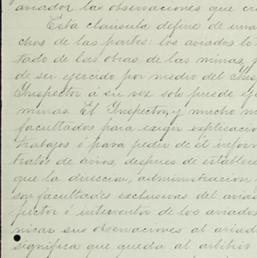 aviador las observaciones que cre
Esta clausula define de una
chos de las partes: los aviados to
tado de las obras de las minas, y
de ser ejercido por medio del Ins
Inspector á su vez solo puede eje
minas. El Inspector, y mucho m
facultados para exigir explicacio
trabajos ó para pedir de él inform
tratos de avios, despues de establece
que la direccion, administracion
son facultades exclusivas del avia
pector ó interventor de los aviados
nicar sus observaciones al aviad
significa que queda al arbitrio